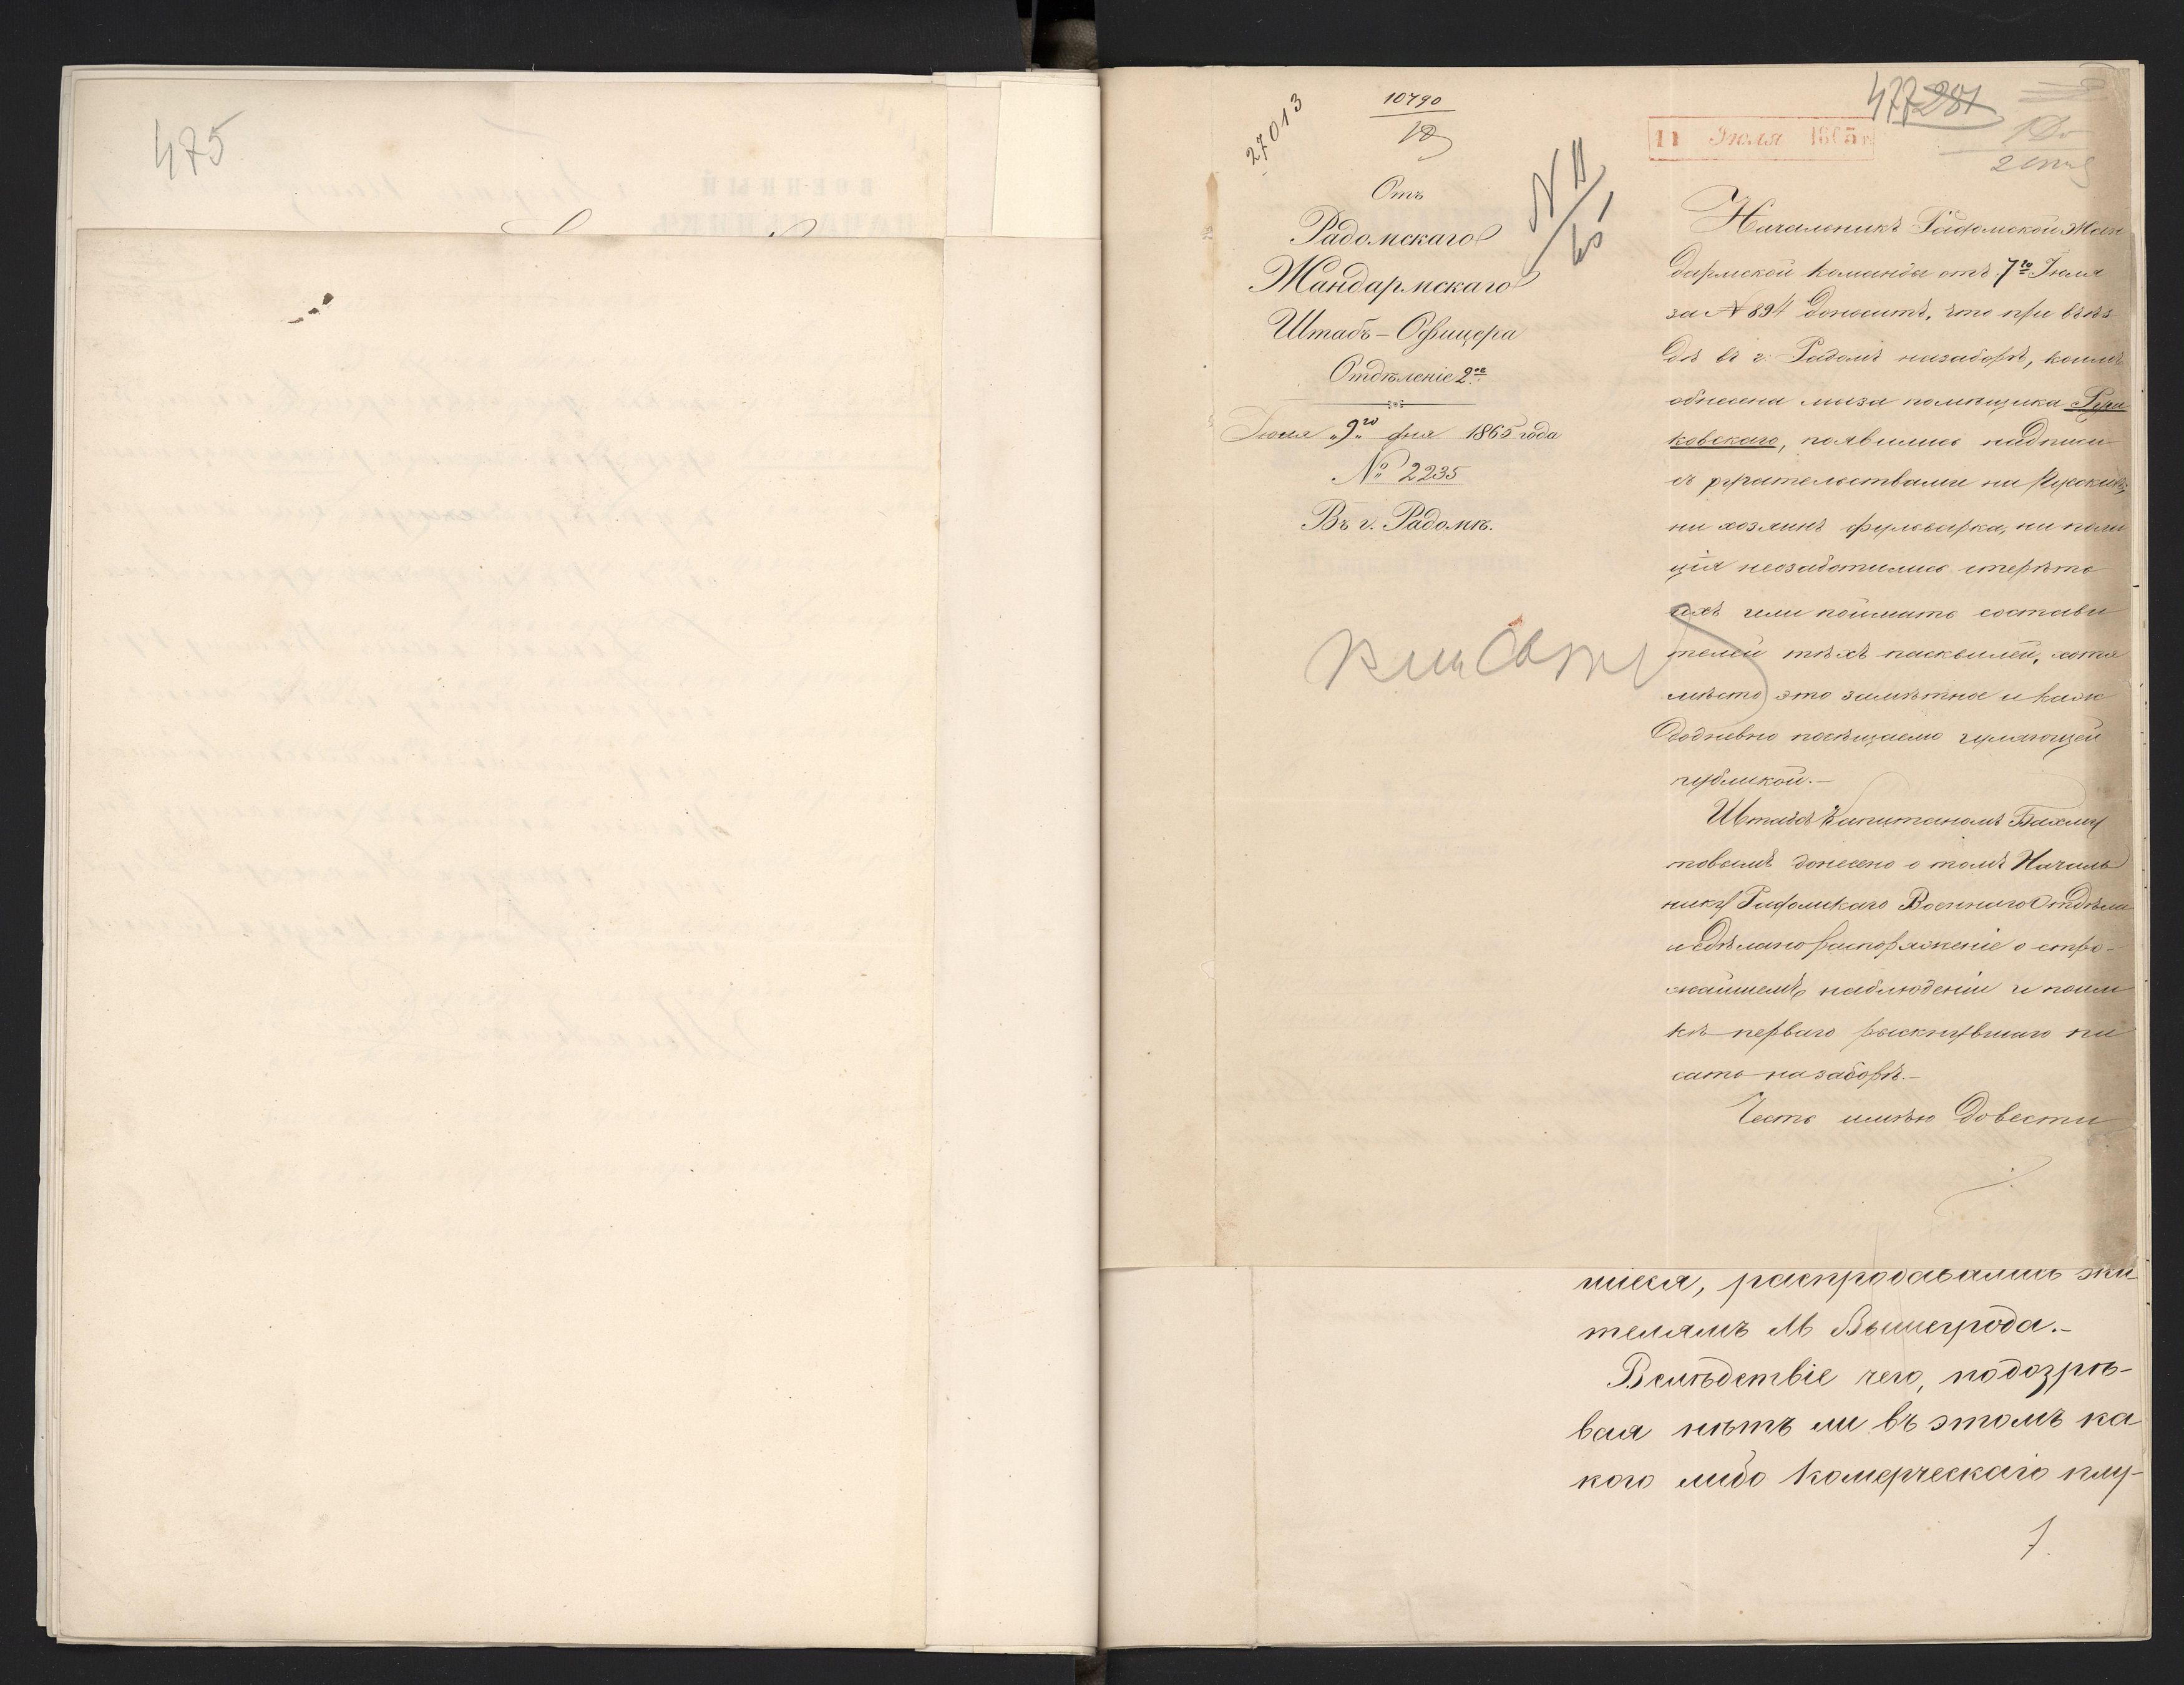 475
27013
10790
18
477 281
11 Июля 1865 г.
Отъ
Радомскаго
Жандармскаго
Штабъ-Офицера
Отдѣленіе 2ое
Іюля „9го“ дня 1865 года
№ 2235
Въ г. Радомѣ.
Начальникъ Радомской Жан
дармской команды отъ 7го Іюля
за № 894 доноситъ, что при въѣз
дѣ въ г. Радомъ назаборѣ, коимъ
обнесена мыза помѣщика
ковскаго, появились надписи
съ ругательствами на Русскихъ,
ни хозяинъ фульварка, ни поли
ція неозаботились стерѣть
ихъ или поймать состави
телей тѣхъ пасквилей, хотя
мѣсто это замѣтное и каж
додневно посѣщаемо гуляющей
публикой.-
Штабсъ Капитаномъ Бахму
товымъ донесено о томъ Началь
нику Радомскаго Военнаго Отдѣла
и сдѣлано распоряженіе о стро-
жайшемъ наблюденіи и поим
кѣ перваго рыскнувшаго пи
сать назаборѣ.-
Честь имѣю довести
шиеся, распродавались жи
телямъ М Вышегрода.-
Вслѣдствіе чего, подозрѣ-
вая нѣтъ ли въ этомъ ка
кого либо комерческаго плу-